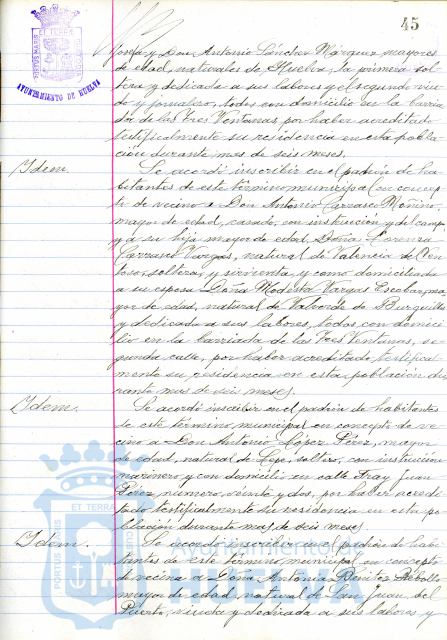 45
PORTUS MARIS ET TERRAE
AYUNTAMIENTO DE HUELVA
y Don Antonio Sánchez Márquez, mayores
de edad, naturales de Huelva, la primera sol-
tera y dedicada a sus labores y el segundo viu-
do y jornalero, todos con domicilio en la barria-
da de las Tres Ventanas, por haber acreditado
testificalmente su residencia en esta pobla-
ción durante mas de seis meses.
Idem. Se acordó inscribir en el padrón de ha-
bitantes de este término municipal en concep-
to de vecino a Don Antonio Carrasco Moñino,
mayor de edad, casado, con instrucción y del campo
y a su hija mayor de edad, Doña Lorenza
Carrasco Vargas, natural de Valencia del Ven-
toso, soltera, y sirvienta, y como domiciliada
a su esposa Doña Modesta Vargas Escobar, ma-
yor de edad, natural de Valverde de Burguillos
y dedicada a sus labores, todos con domici-
lio en la barriada de las Tres Ventanas, se-
gunda calle, por haber acreditado testifical-
mente su residencia en esta población du-
rante mas de seis meses.
Idem. Se acordó inscribir en el padrón de habitantes
de este término municipal en concepto de ve-
cino a Don Antonio López Pérez, mayor
de edad, natural de Lepe, soltero, con instrucción
marinero y con domicilio en calle Fray Juan
Pérez, numero, veinte y dos, por haber acredi-
tado testificalmente su residencia en esta po-
blación durante mas de seis meses.
Idem. Se acordó inscribir en el padrón de habi-
tantes de este término municipal en concepto
de vecina a Doña Antonia Benítez Rebollo
mayor de edad, natural de San Juan del
Puerto, viuda y dedicada a sus labores, y
PORTUS MARIS ET TERRAE
Ayuntamiento de
HUELVA